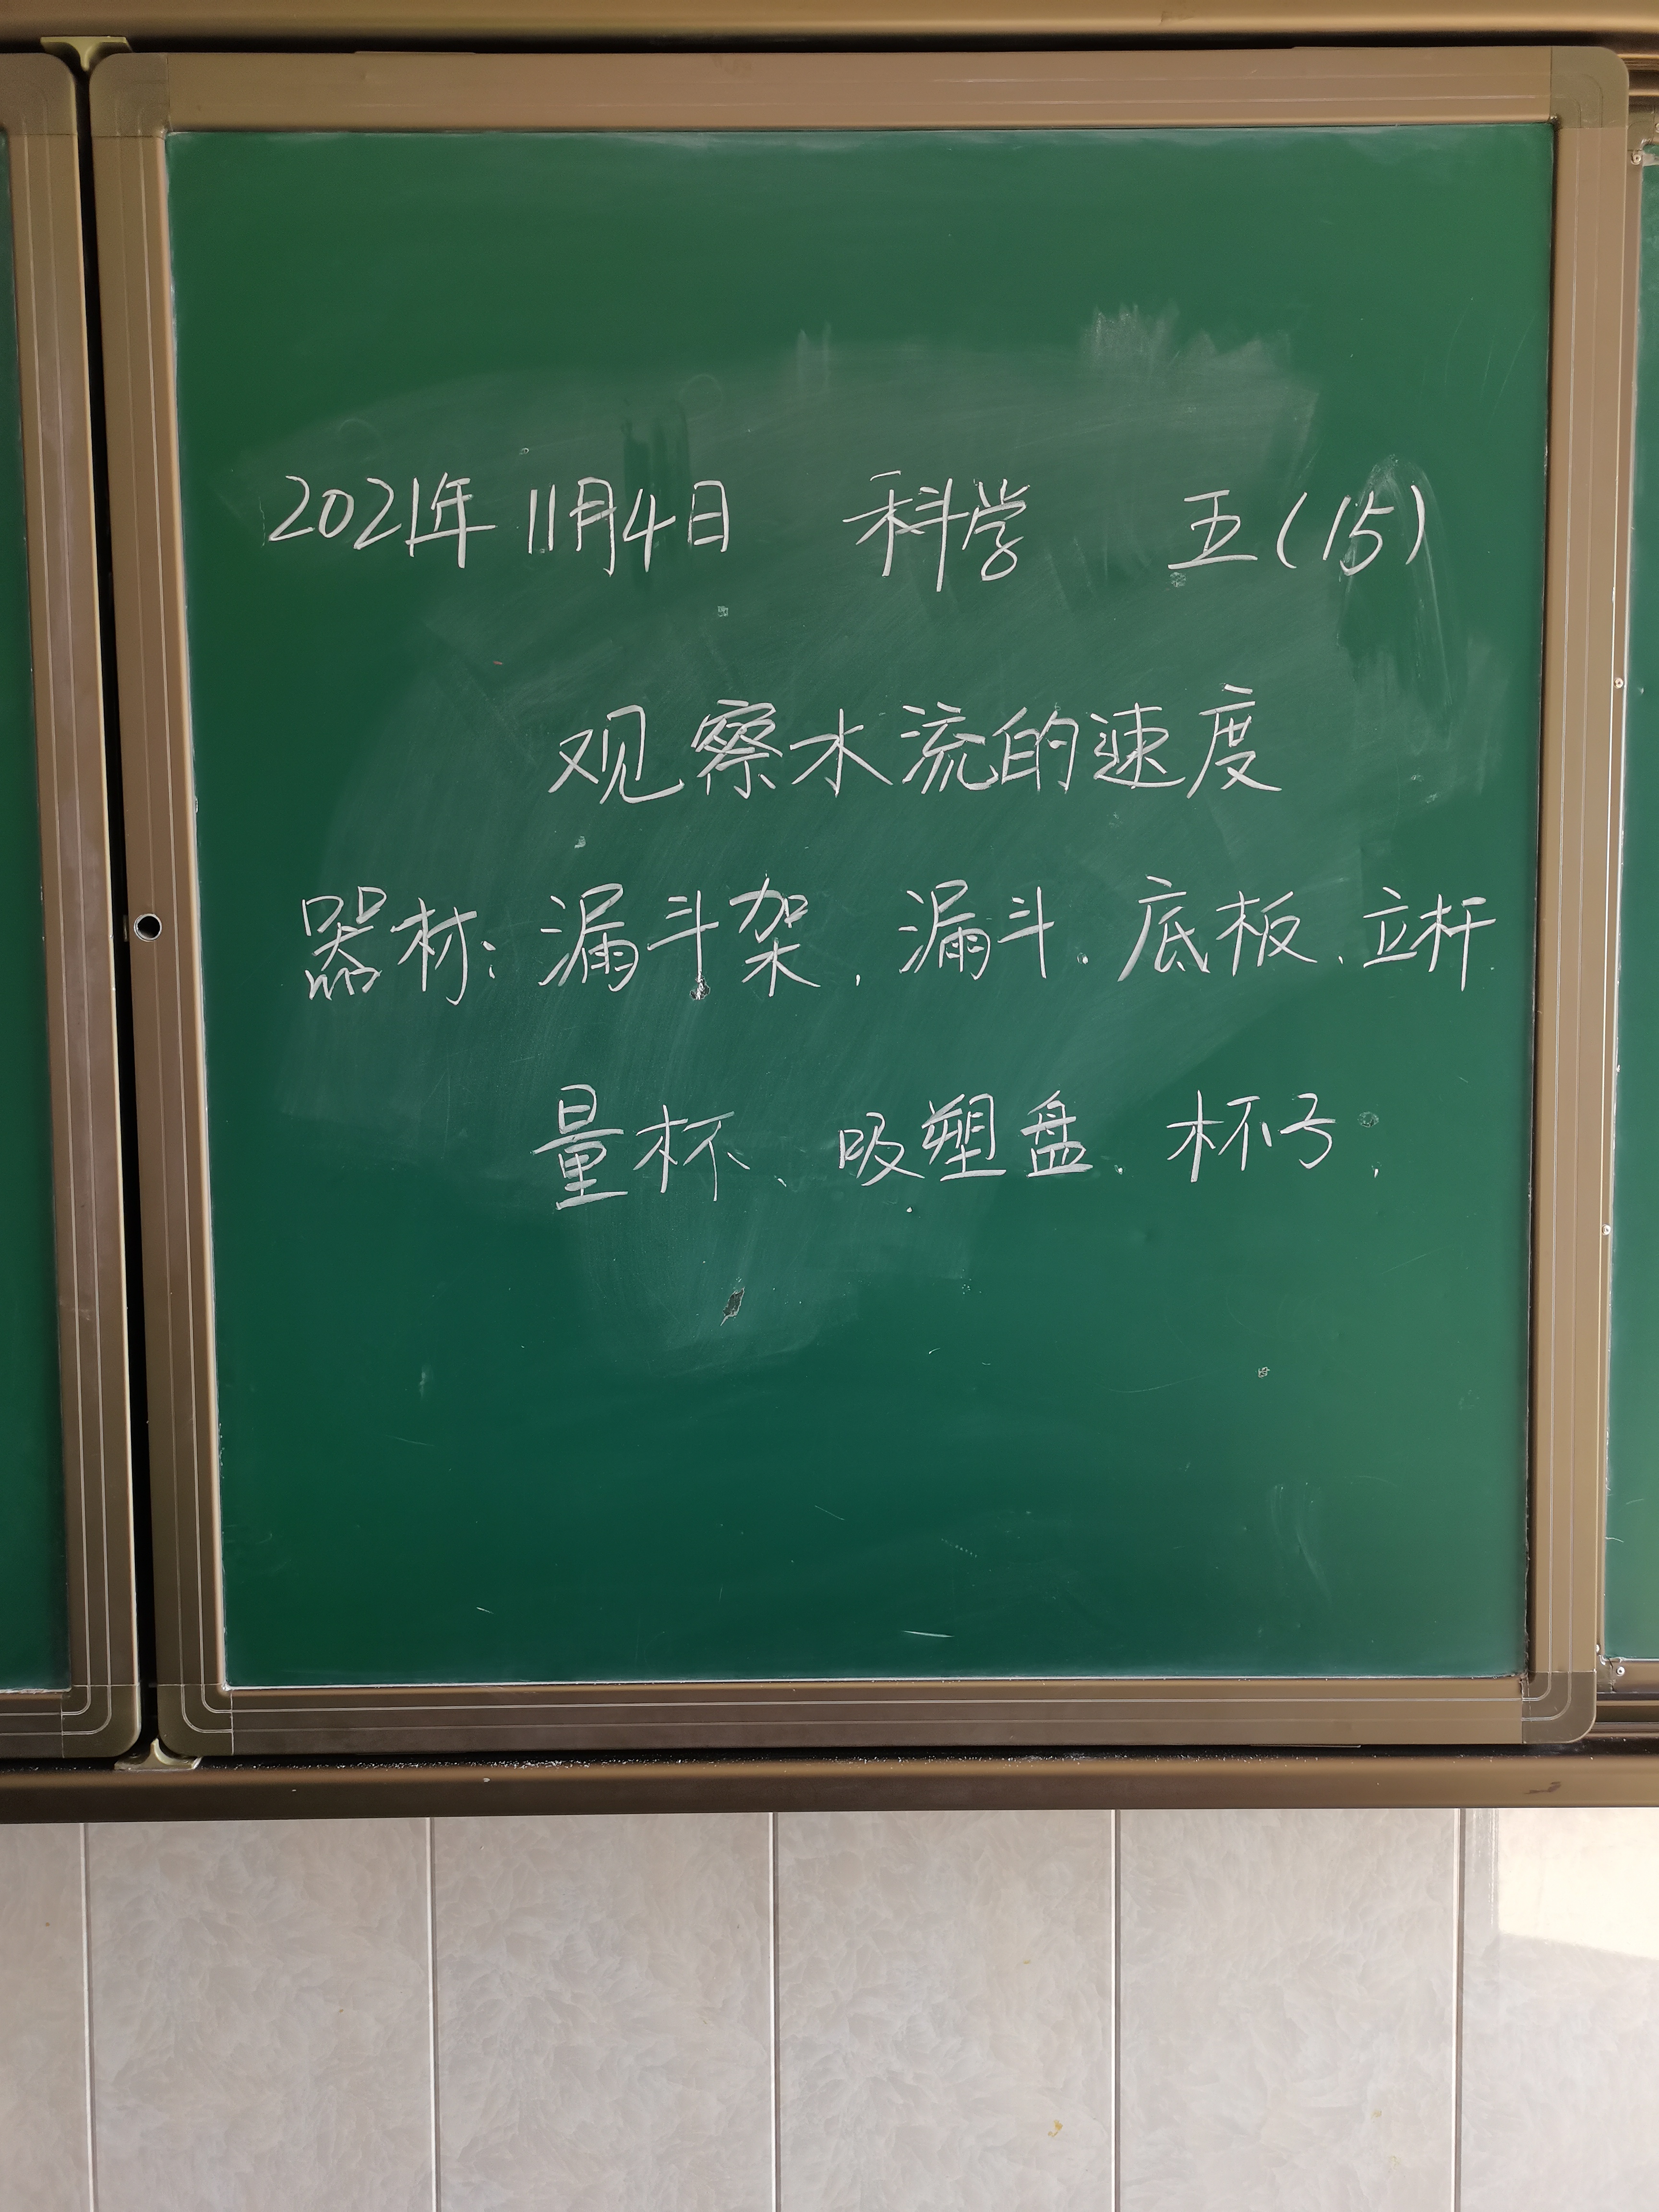 2021年11月4日 科学 五(15)
观察水流的速度
器材:漏斗架、漏斗、底板、立杆
量杯、吸塑盘、杯子、